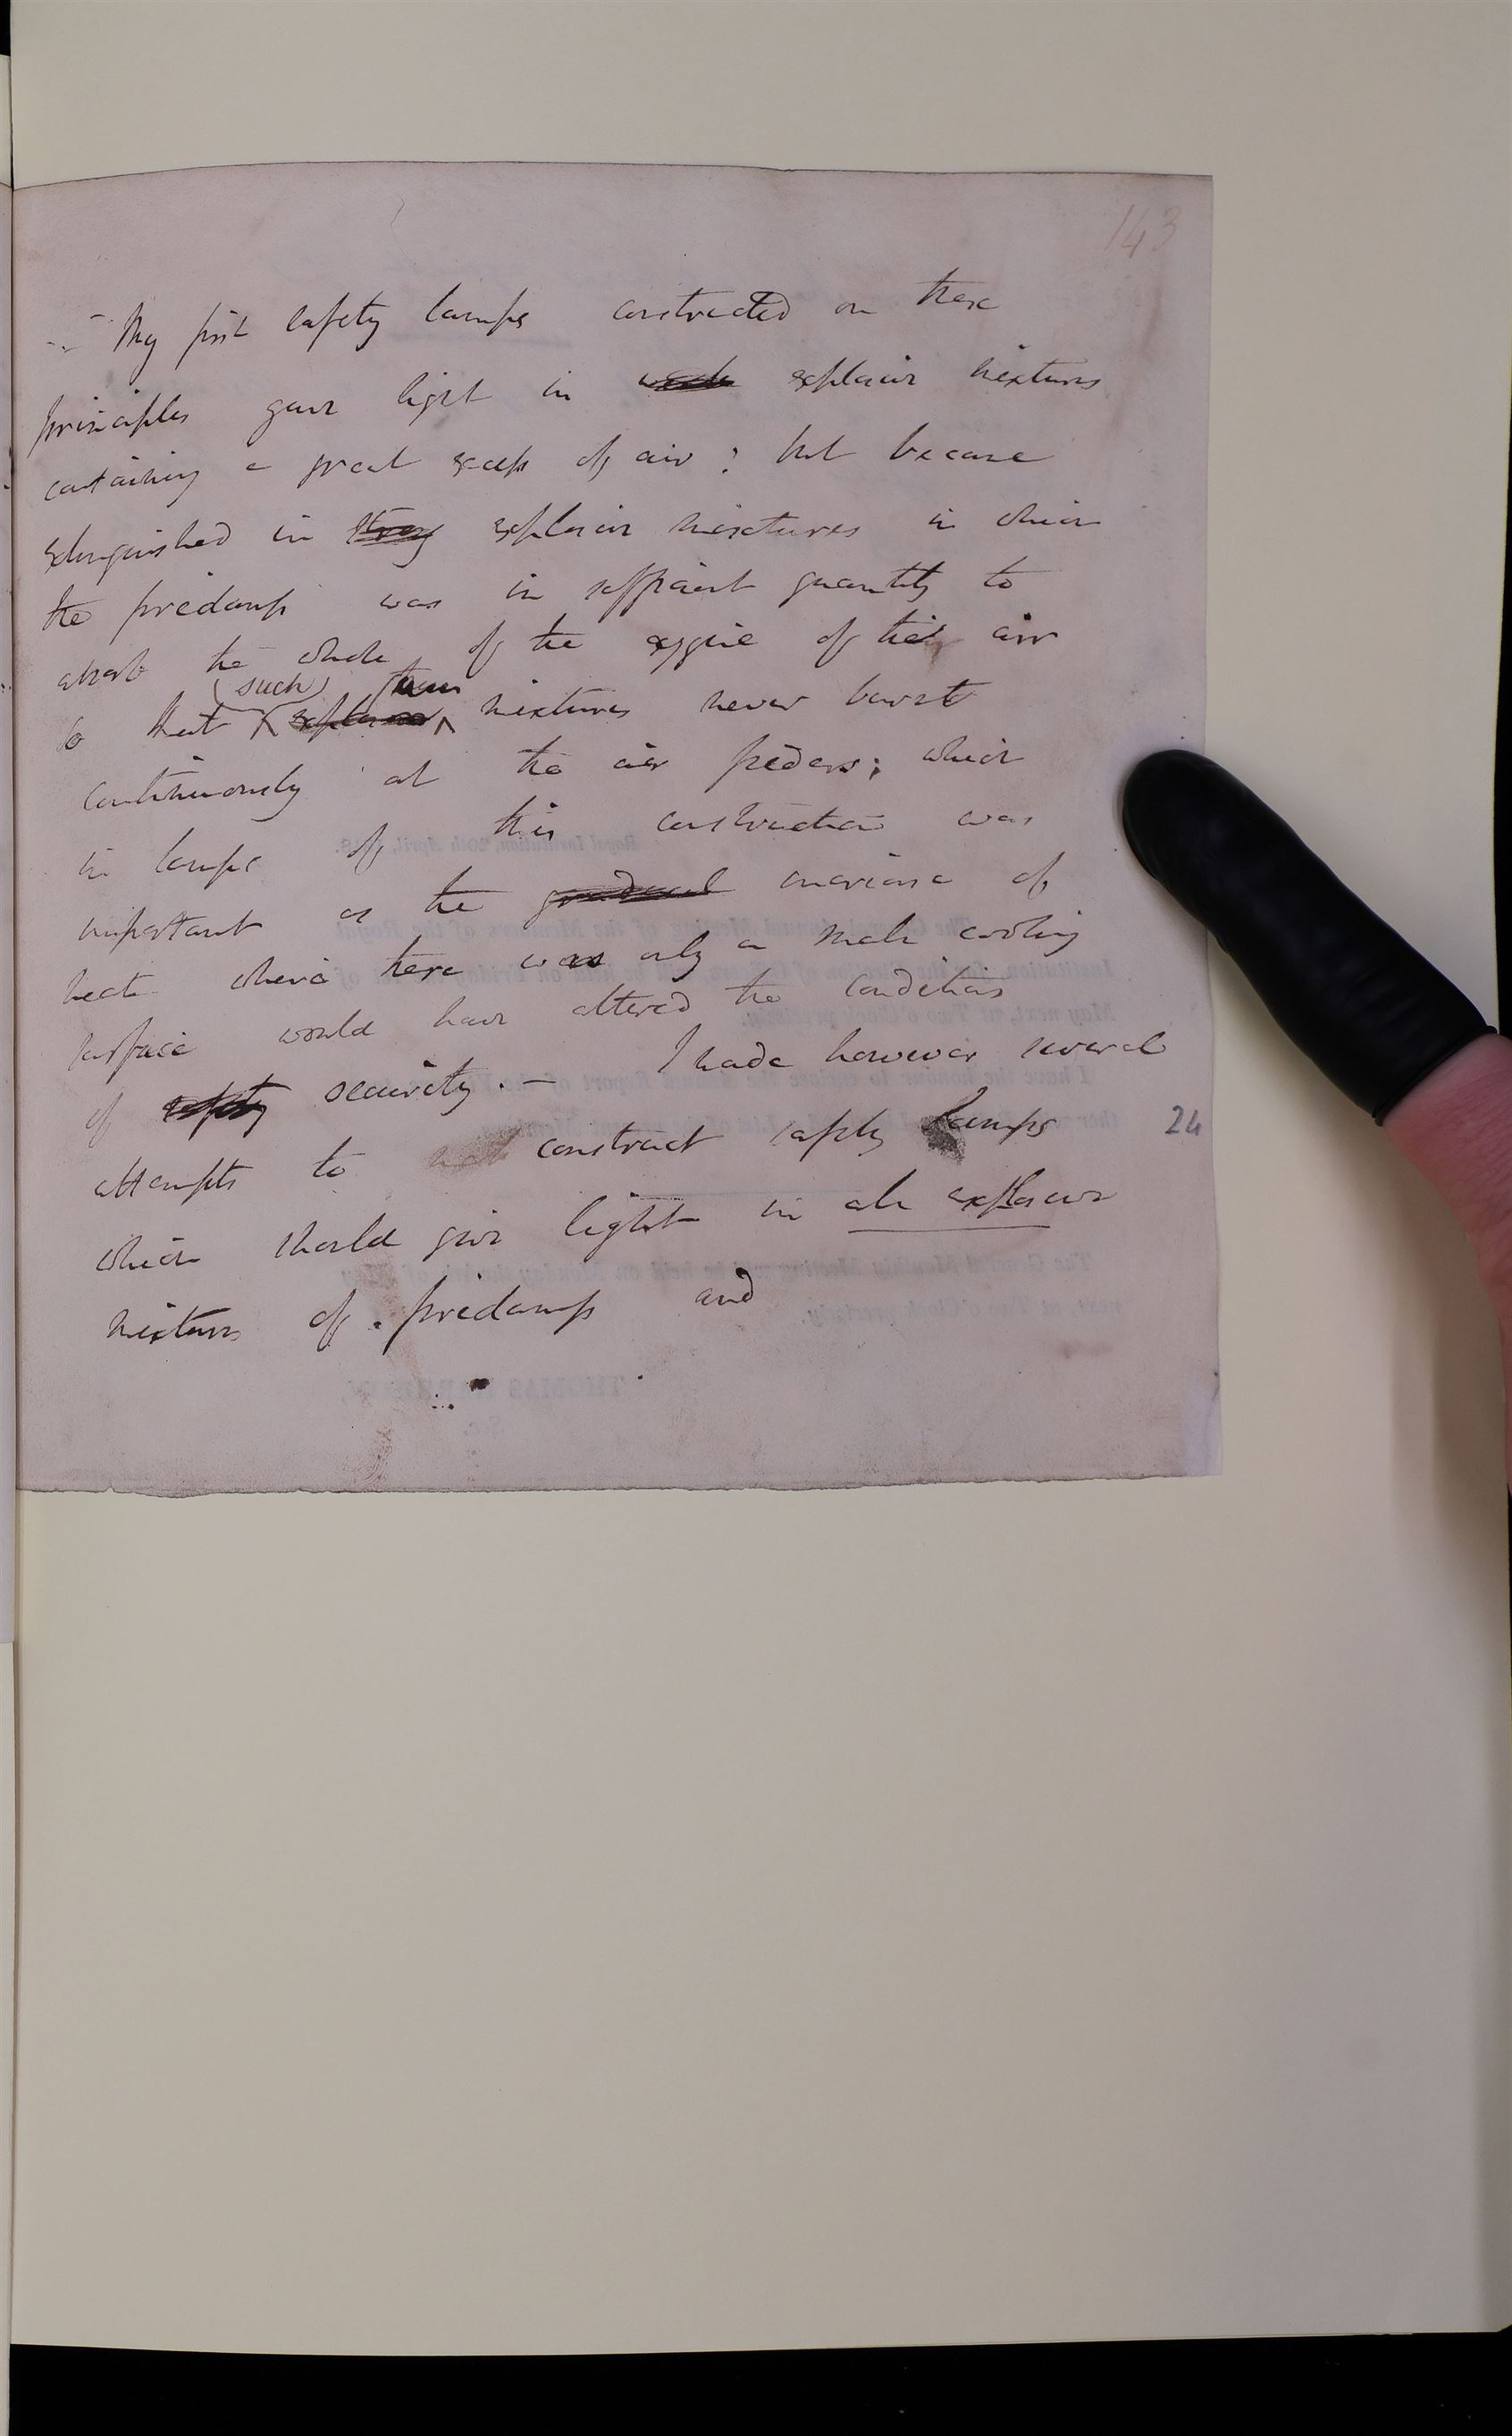 143
My first safety lamps constructed on these
principles gave light in explosive mixtures
containing a great excess of air; but became
extinguished in strong explosive mixtures in which
the firedamp was in sufficient quantity to
absorb the whole of the oxygene of the air
(such)
so that explosive mixtures never burst
continuously at the air feeders; which
in lamps of this construction was
important as the gradual increase of
heat where there was only a small cooling
surface would have altered the conditions
of safety security. — I made however several
attempts to construct safety lamps
24
which should give light in all explosive
mixtures of firedamp and